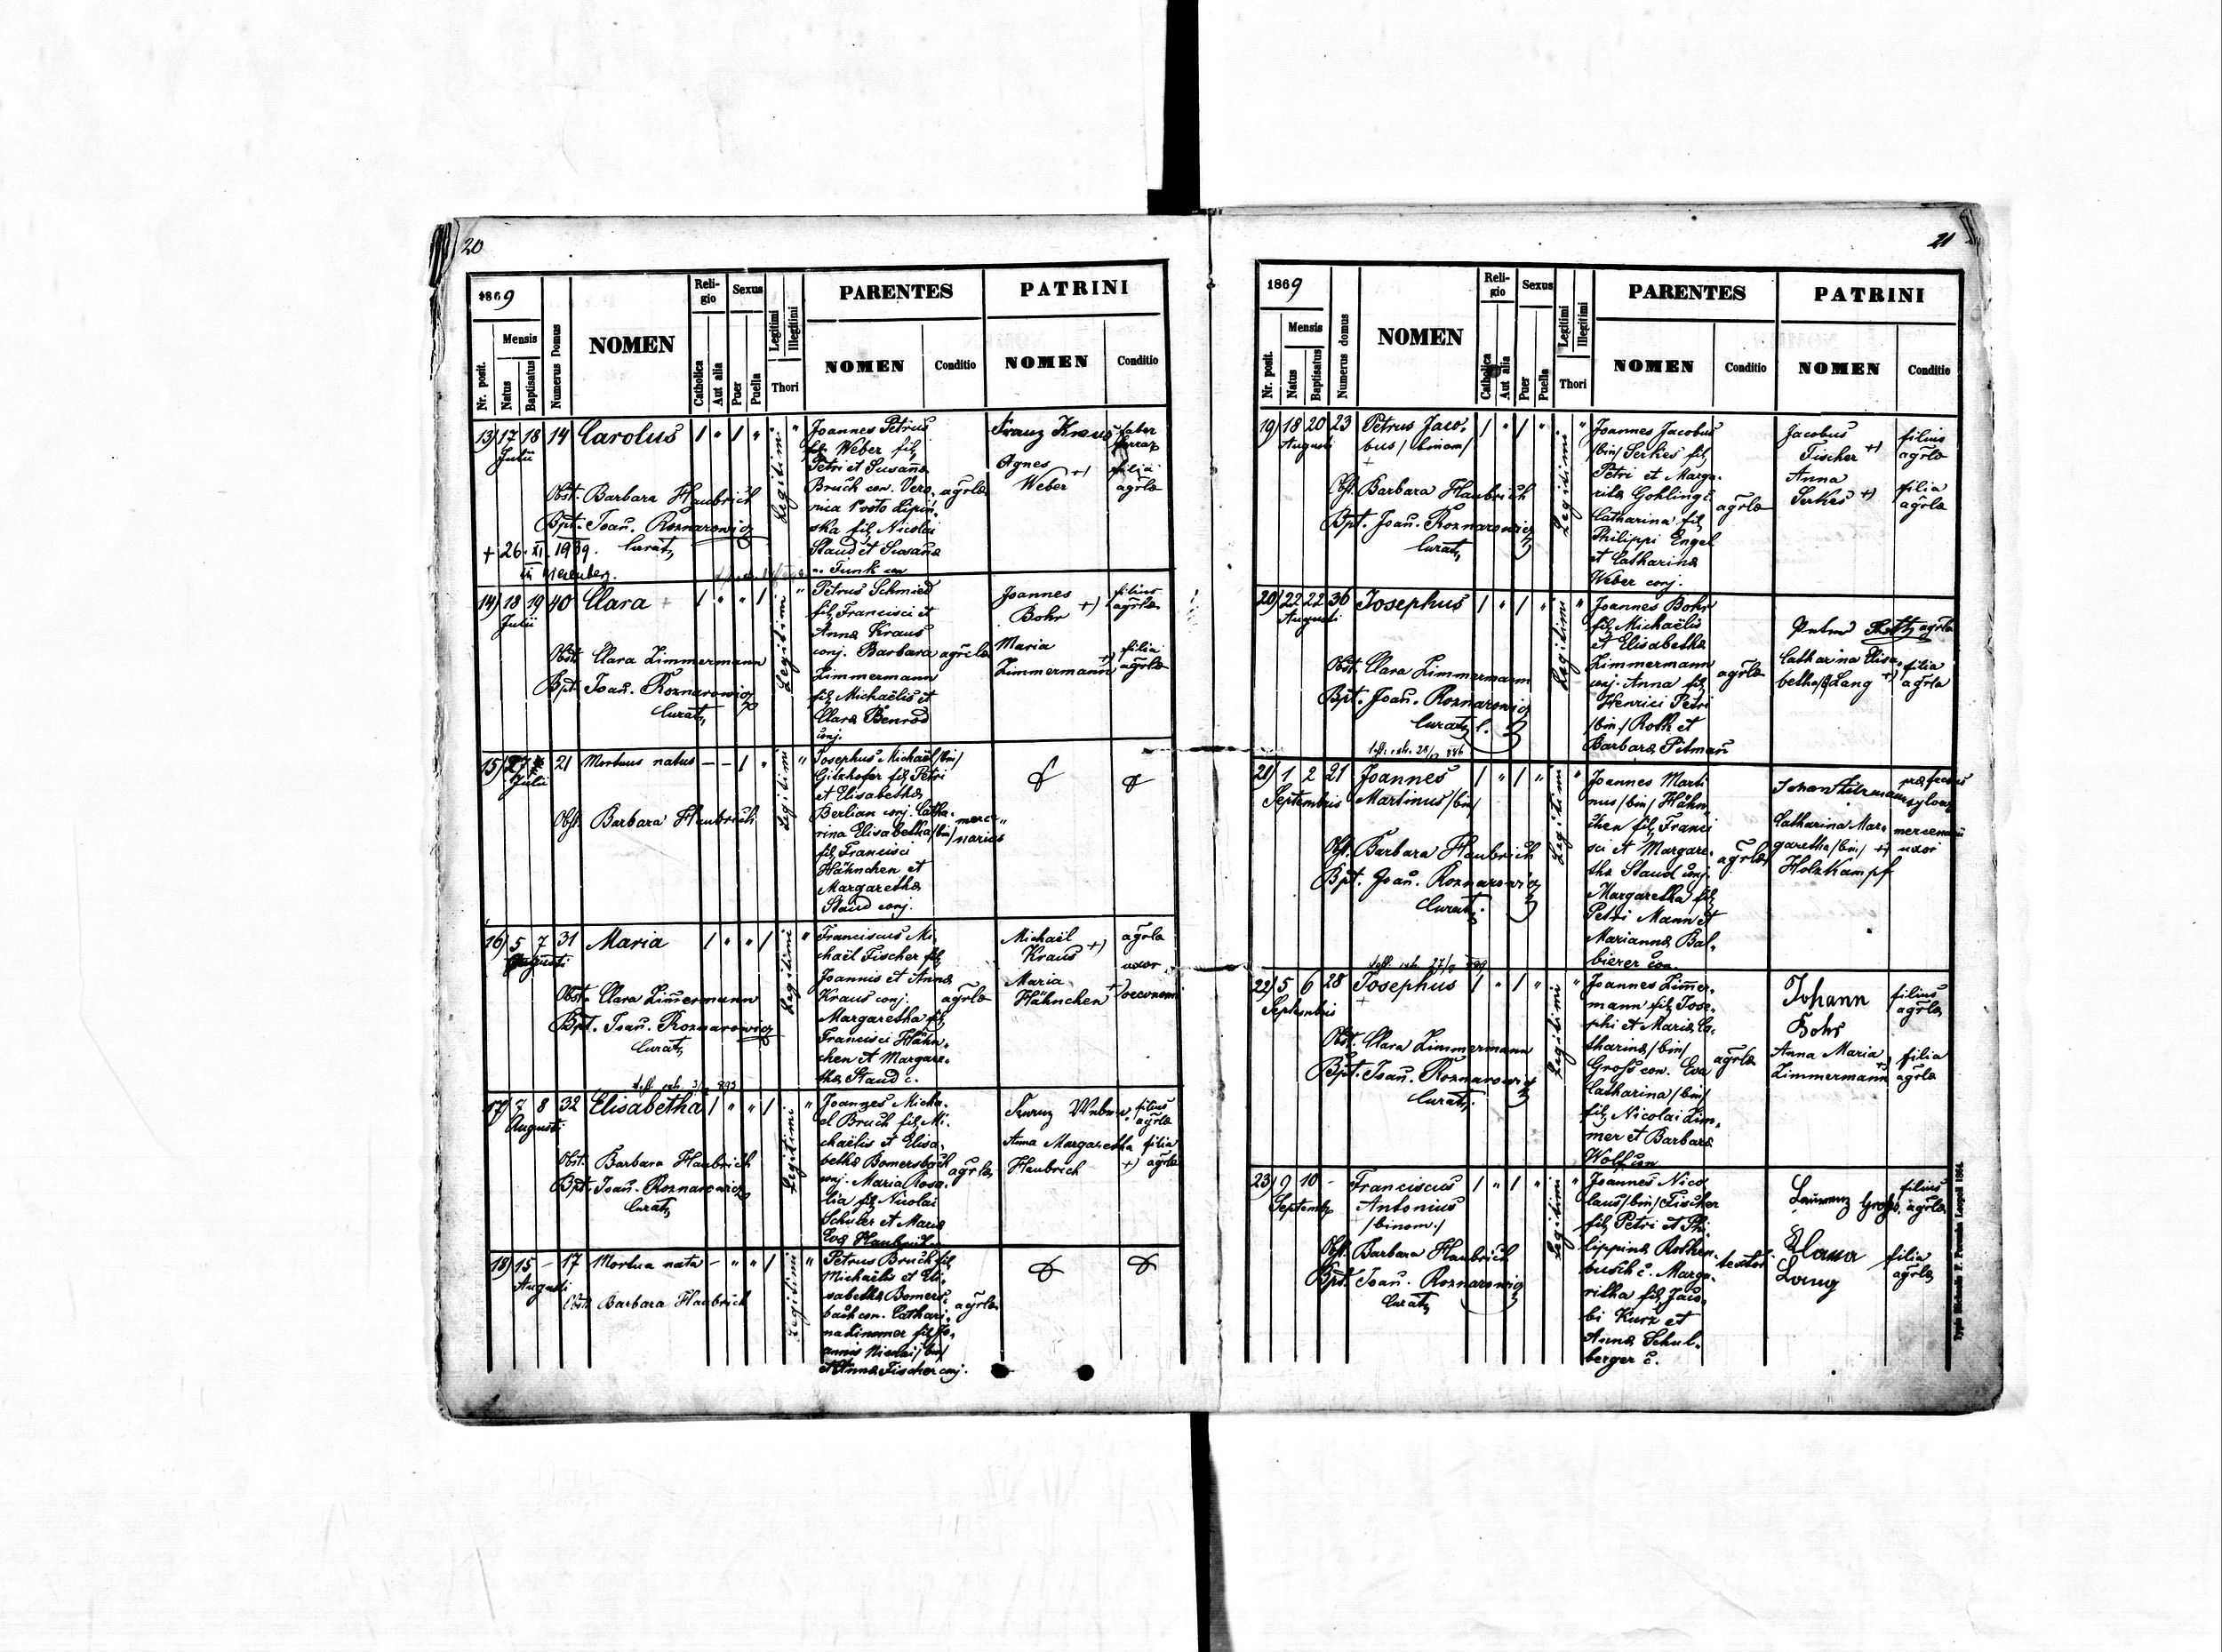 20
1869
Nr. posit.
Mensis
Natus
Baptisatus
Numerus Domus
NOMEN
Reli-
gio
Catholica
Aut alia
Sexus
Puer
Puella
Legitimi
Illegitimi
Thori
PARENTES
NOMEN
Conditio
PATRINI
NOMEN
Conditio
13) 17 18 14 Carolus 1 " 1 "
Julii
Legitimi
Obst. Barbara Haubrich
Bpt. Joan. Roznarowicz
Curat
+ 26. XI. 1939.
Joannes Petrus
Weber fil.
Petri et Susanna
Bruch con. Vero-
nica Lipin-
ska fil. Nicolai
Staud et Susanna
Funk con
agrla
Franz Kraus faber
Agnes
Weber +)
filia
agrla
14) 18 19 40 Clara 1 " " 1
Julii
Legitimi
Obst. Clara Zimmermann
Bpt. Joan. Roznarowicz
Curat
Petrus Schmied
fil. Francisci et
Anna Kraus
conj. Barbara
Zimmermann
fil. Michaëlis et
Clara Benrod
conj.
agrla
Joannes
Bohr +)
filius
agrla
Maria
Zimmermann +)
filia
agrla
15) 27 21 Mortuus natus — — 1 "
Julii
Legitimi
Obst. Barbara Haubrich
Josephus Michaël /bin/
Gilzhofer fil. Petri
et Elisabetha
Berlian conj. Catha-
rina Elisabetha /bin/
fil. Francisci
Hähnchen et
Margaretha
Staud conj.
merce-
narius
16) 5 7 31 Maria 1 " " 1
Augusti
Legitimi
Obst. Clara Zimmermann
Bpt. Joan. Roznarowicz
Curat
Franciscus Mi-
chaël Fischer fil.
Joannis et Anna
Kraus conj.
Margaretha fil.
Francisci Hähn-
chen et Margare-
tha Staud c.
agrla
Michaël
Kraus +)
agrla
Maria
Hähnchen +
uxor
oeconomi
17) 7 8 32 Elisabetha 1 " " 1
Augusti
Legitimi
Obst. Barbara Haubrich
Bpt. Joan. Roznarowicz
Curat
Joannes Micha-
el Bruch fil. Mi-
chaëlis et Elisa-
betha Bomersbach
conj. Maria Rosa-
lia fil. Nicolai
Schuler et Maria
Eva Haubrich
agrla
Franz Weber filius
agrla
Anna Margaretha
Haubrich +)
filia
agrla
18) 15 – 17 Mortua nata – " " 1
Augusti
Legitimi
Obst. Barbara Haubrich
Petrus Bruch fil.
Michaëlis et Eli-
sabetha Bomers-
bach con. Cathari-
na fil. Jo-
annis Nicolai /bin/
et Anna Fischer conj.
agrla
21
1869
Nr. posit.
Mensis
Natus
Baptisatus
Numerus domus
NOMEN
Reli-
gio
Catholica
Aut alia
Sexus
Puer
Puella
Legitimi
Illegitimi
Thori
PARENTES
NOMEN
Conditio
PATRINI
NOMEN
Conditio
19) 18 20 23 Petrus Jaco-
bus /binom/ 1 " 1 "
Augusti
Legitimi
Obst. Barbara Haubrich
Bpt. Joan. Roznarowicz
Curat
Joannes Jacobus
/bin/ Serkes fil.
Petri et Marga-
rita Gohling c.
Catharina fil.
Philippi Engel
et Catharina
Weber conj.
agrla
Jacobus
Fischer +)
filius
agrla
Anna
Serkes +)
filia
agrla
20) 22 22 36 Josephus 1 " 1 "
Augusti
Legitimi
Obst. Clara Zimmermann
Bpt. Joan. Roznarowicz
Curat
Joannes Bohr
fil. Michaëlis
et Elisabetha
Zimmermann
conj. Anna fil.
Henrici Petri
/bin/ Roth et
Barbara Pitman
agrla
agrla
Catharina Elisa-
betha Lang +)
filia
agrla
21) 1 2 21 Joannes
Martinus /bin/ 1 " 1 "
Septembris
Legitimi
Obst. Barbara Haubrich
Bpt. Joan. Roznarowicz
Curat
Joannes Marti-
nus /bin/ Hähn-
chen fil. Franci-
sci et Margare-
tha Staud conj.
Margaretha fil.
Petri Mann et
Marianna Bal-
bierer con.
agrla
Catharina Mar-
garetha /bin/ +)
Holzkampf
mercenarii
uxor
22) 5 6 28 Josephus 1 " 1 "
Septembris
Legitimi
Obst. Clara Zimmermann
Bpt. Joan. Roznarowicz
Curat
Joannes Zimmer-
mann fil. Jose-
phi et Maria Ca-
tharina /bin/
Gross con. Eva
Catharina /bin/
fil. Nicolai Zim-
mer et Barbara
Wolf con
agrla
Johann
Bohr
filius
agrla
Anna Maria
Zimmermann +
filia
agrla
23) 9 10 – Franciscus
Antonius
/binom./ 1 " 1 "
Legitimi
Obst. Barbara Haubrich
Bpt. Joan. Roznarowicz
Curat
Joannes Nico-
laus /bin/ Fischer
fil. Petri et Phi-
lippina Rothen-
busch c. Marga-
ritha fil. Jaco-
bi Kurz et
Anna Schul-
berger c.
textor
Gross
filius
agrla
Klara
Lang
filia
agrla